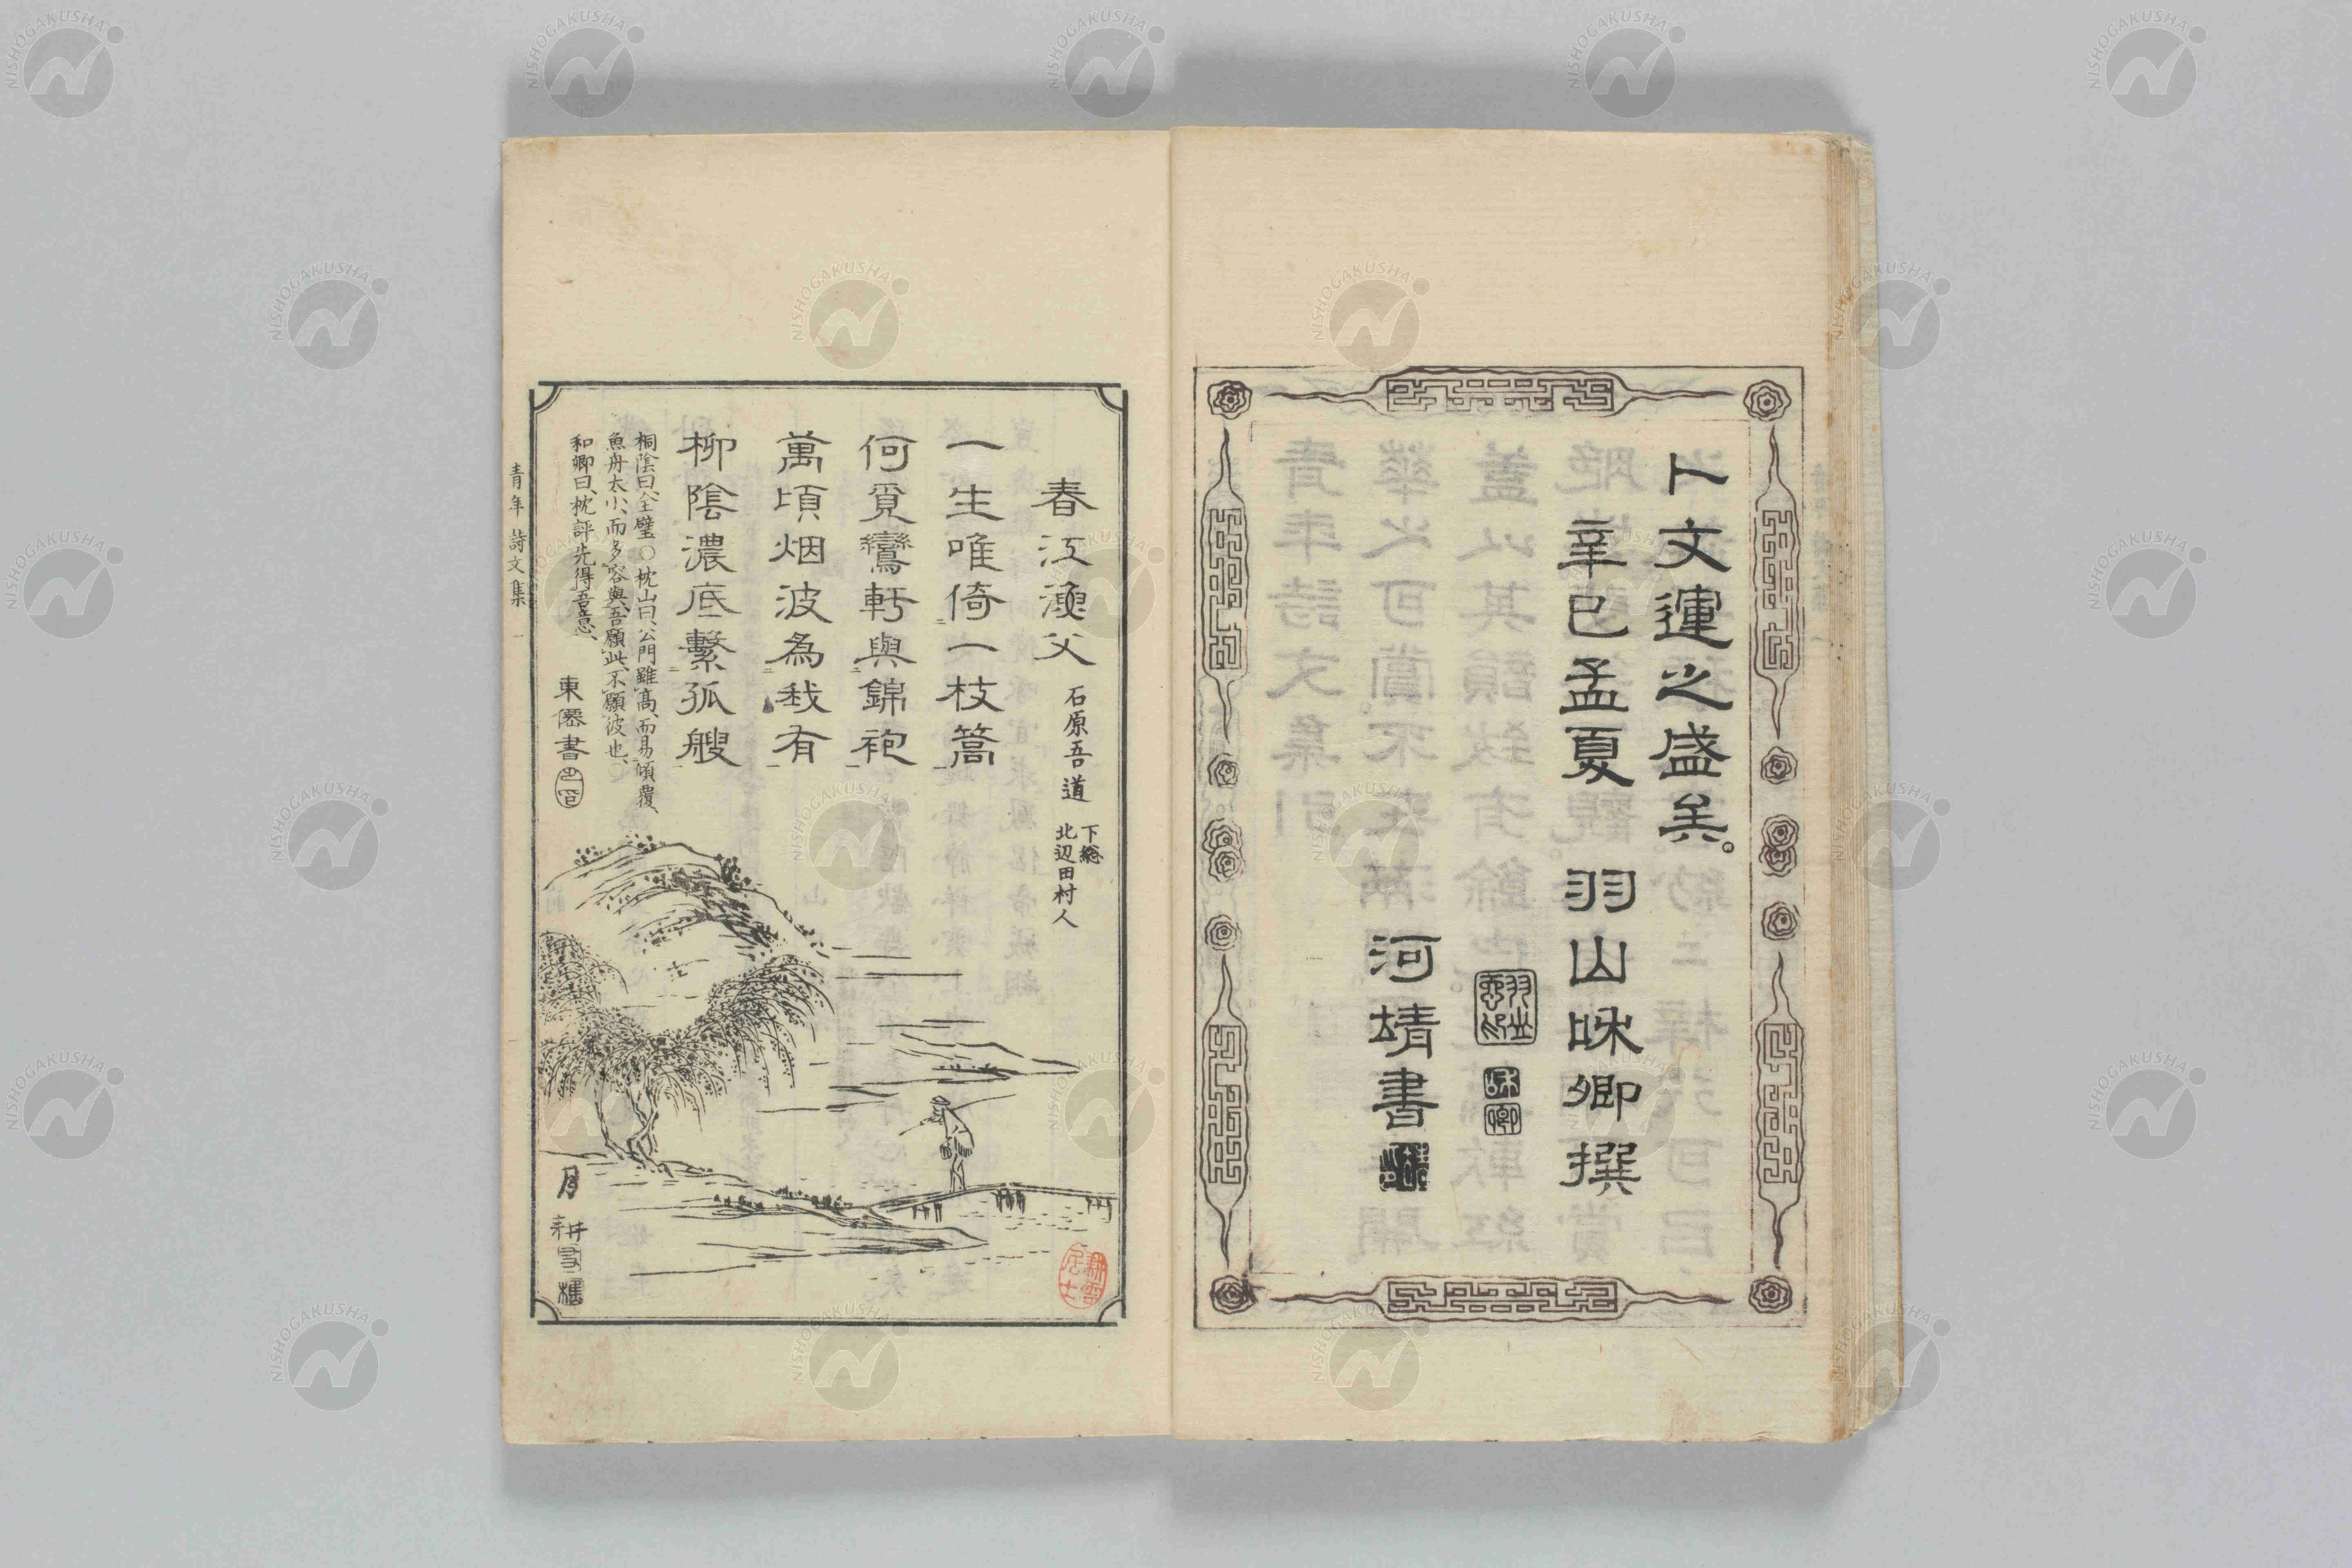 卜文運之盛矣。
辛巳孟夏 羽山咊卿撰
河靖書
春江漁父 石原吾道 下總北辺田村人
一生唯倚一枝篙
何覓鸞軒與錦袍
萬頃烟波為我有
柳陰濃底繫孤艘
桐陰曰、全璧、○枕山曰、公門雖高、而易傾覆、
魚舟太小、而多容與、吾願此、不願彼也、○
和卿曰、枕評先得吾意、
東僊書
月耕雪樵
青年詩文集 一
NISHOGAKUSHA